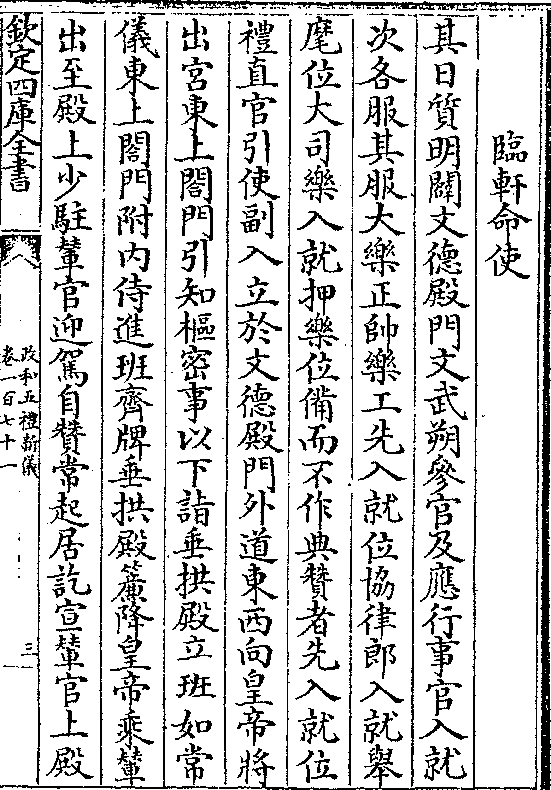 臨軒命使
其日質明闢文德殿門文武朔參官及應行事官入就
次各服其服大樂正帥樂工先入就位協律郎入就舉
麾位大司樂入就押樂位備而不作典贊者先入就位
禮直官引使副入立於文德殿門外道東西向皇帝將
出宮東上閤門引知樞密事以下詣垂拱殿立班如常
儀東上閤門附內侍進班齊牌垂拱殿簾降皇帝乘輦
出至殿上少駐輦官迎駕自贊常起居訖宣輦官上殿
欽定四庫全書
政和五禮新儀
卷一百七十一
三